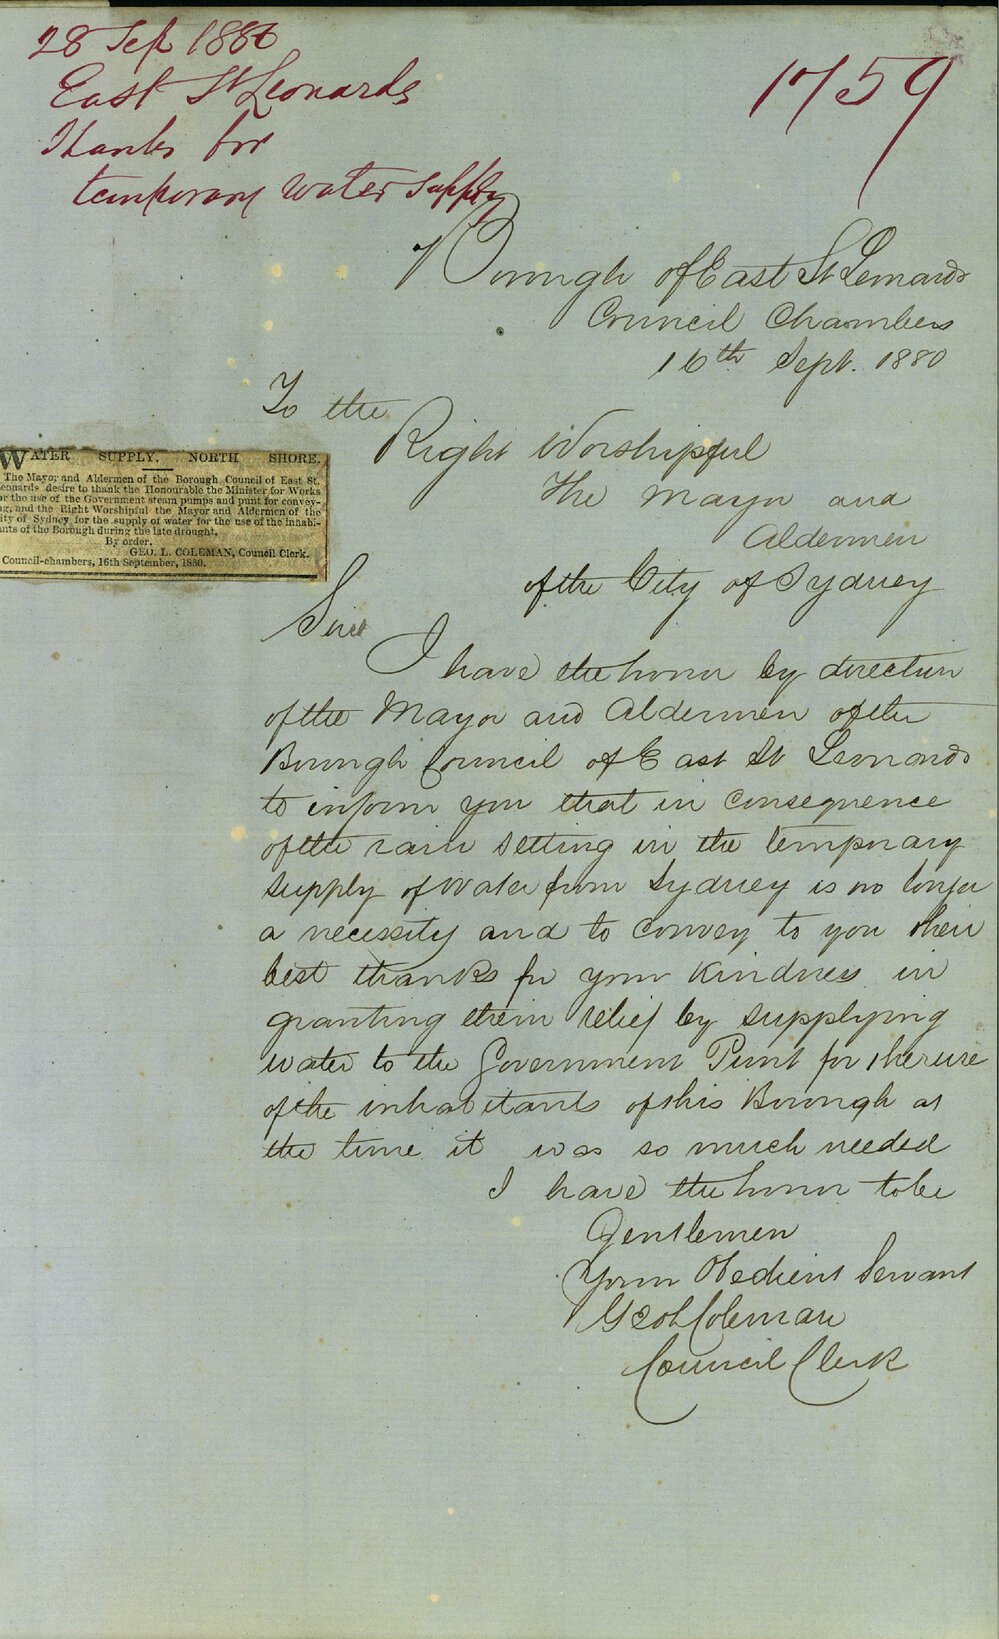 28 Sep 1880
East St Leonards
Thanks for
temporary water supply
1759
Borough of East St Leonards
Council Chambers
16th Sept. 1880
To the
Right Worshipful
The Mayor and
Aldermen
of the City of Sydney
WATER SUPPLY, NORTH SHORE.
The Mayor and Aldermen of the Borough Council of East St.
eonards desire to thank the Honourable the Minister for Works
or the use of the Government steam pumps and punt for convey-
g, and the Right Worshipful the Mayor and Aldermen of the
ity of Sydney for the supply of water for the use of the inhabi-
nts of the Borough during the late drought.
By order.
GEO. L. COLEMAN, Council Clerk.
Council-chambers, 16th September, 1880.
I have the honor by direction
of the Mayor and Aldermen of the
Borough Council of East St Leonards
to inform you that in consequence
of the rain setting in the temporary
supply of water from Sydney is no longer
a necessity and to convey to you their
best thanks for your kindness in
granting them relief by supplying
water to the Government Punt for the use
of the inhabitants of this Borough at
the time it was so much needed
I have the honor to be
Gentlemen
Your Obedient Servant
Geo L Coleman
Council Clerk